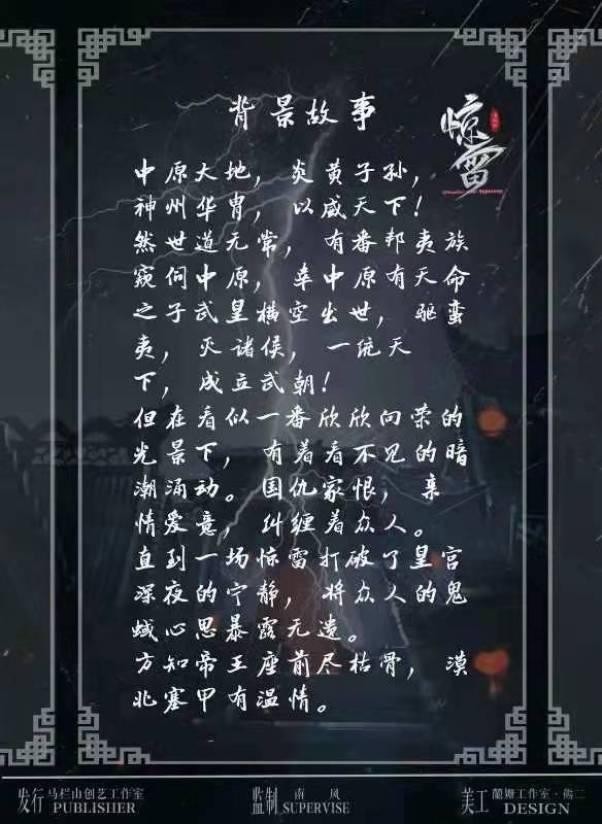 背景故事
惊雷
中原大地，炎黄子孙，
神州华胄，以威天下！
然世道无常，有番邦夷族
窥伺中原，幸中原有天命
之子武皇横空出世，驱蛮
夷，灭诸侯，一统天
下，成立武朝！
但在看似一番欣欣向荣的
光景下，有着看不见的暗
潮涌动。国仇家恨，亲
情爱意，纠缠着众人。
直到一场惊雷打破了皇宫
深夜的宁静，将众人的鬼
蜮心思暴露无遗。
方知帝王座前尽枯骨，漠
北塞甲有温情。
发行 马栏山创艺工作室 PUBLISHER
监制 南风 SUPERVISE
美工 工作室 DESIGN